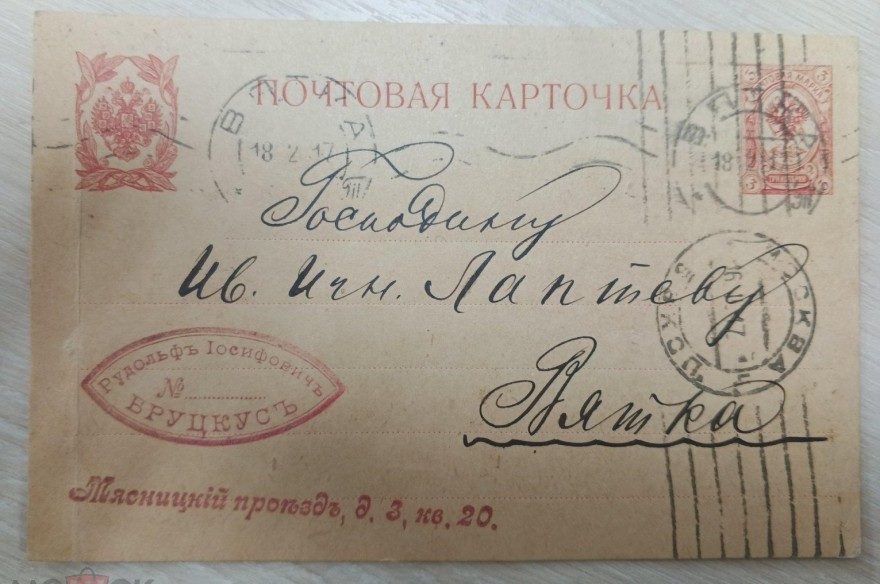 ПОЧТОВАЯ КАРТОЧКА
18 2 17
Господину
Ив. Игн. Лаптеву
Вятка
Рудольфъ Іосифовичъ
№
БРУЦКУСЪ
Мясницкій проѣздъ, д. 3, кв. 20.
МОСКВА